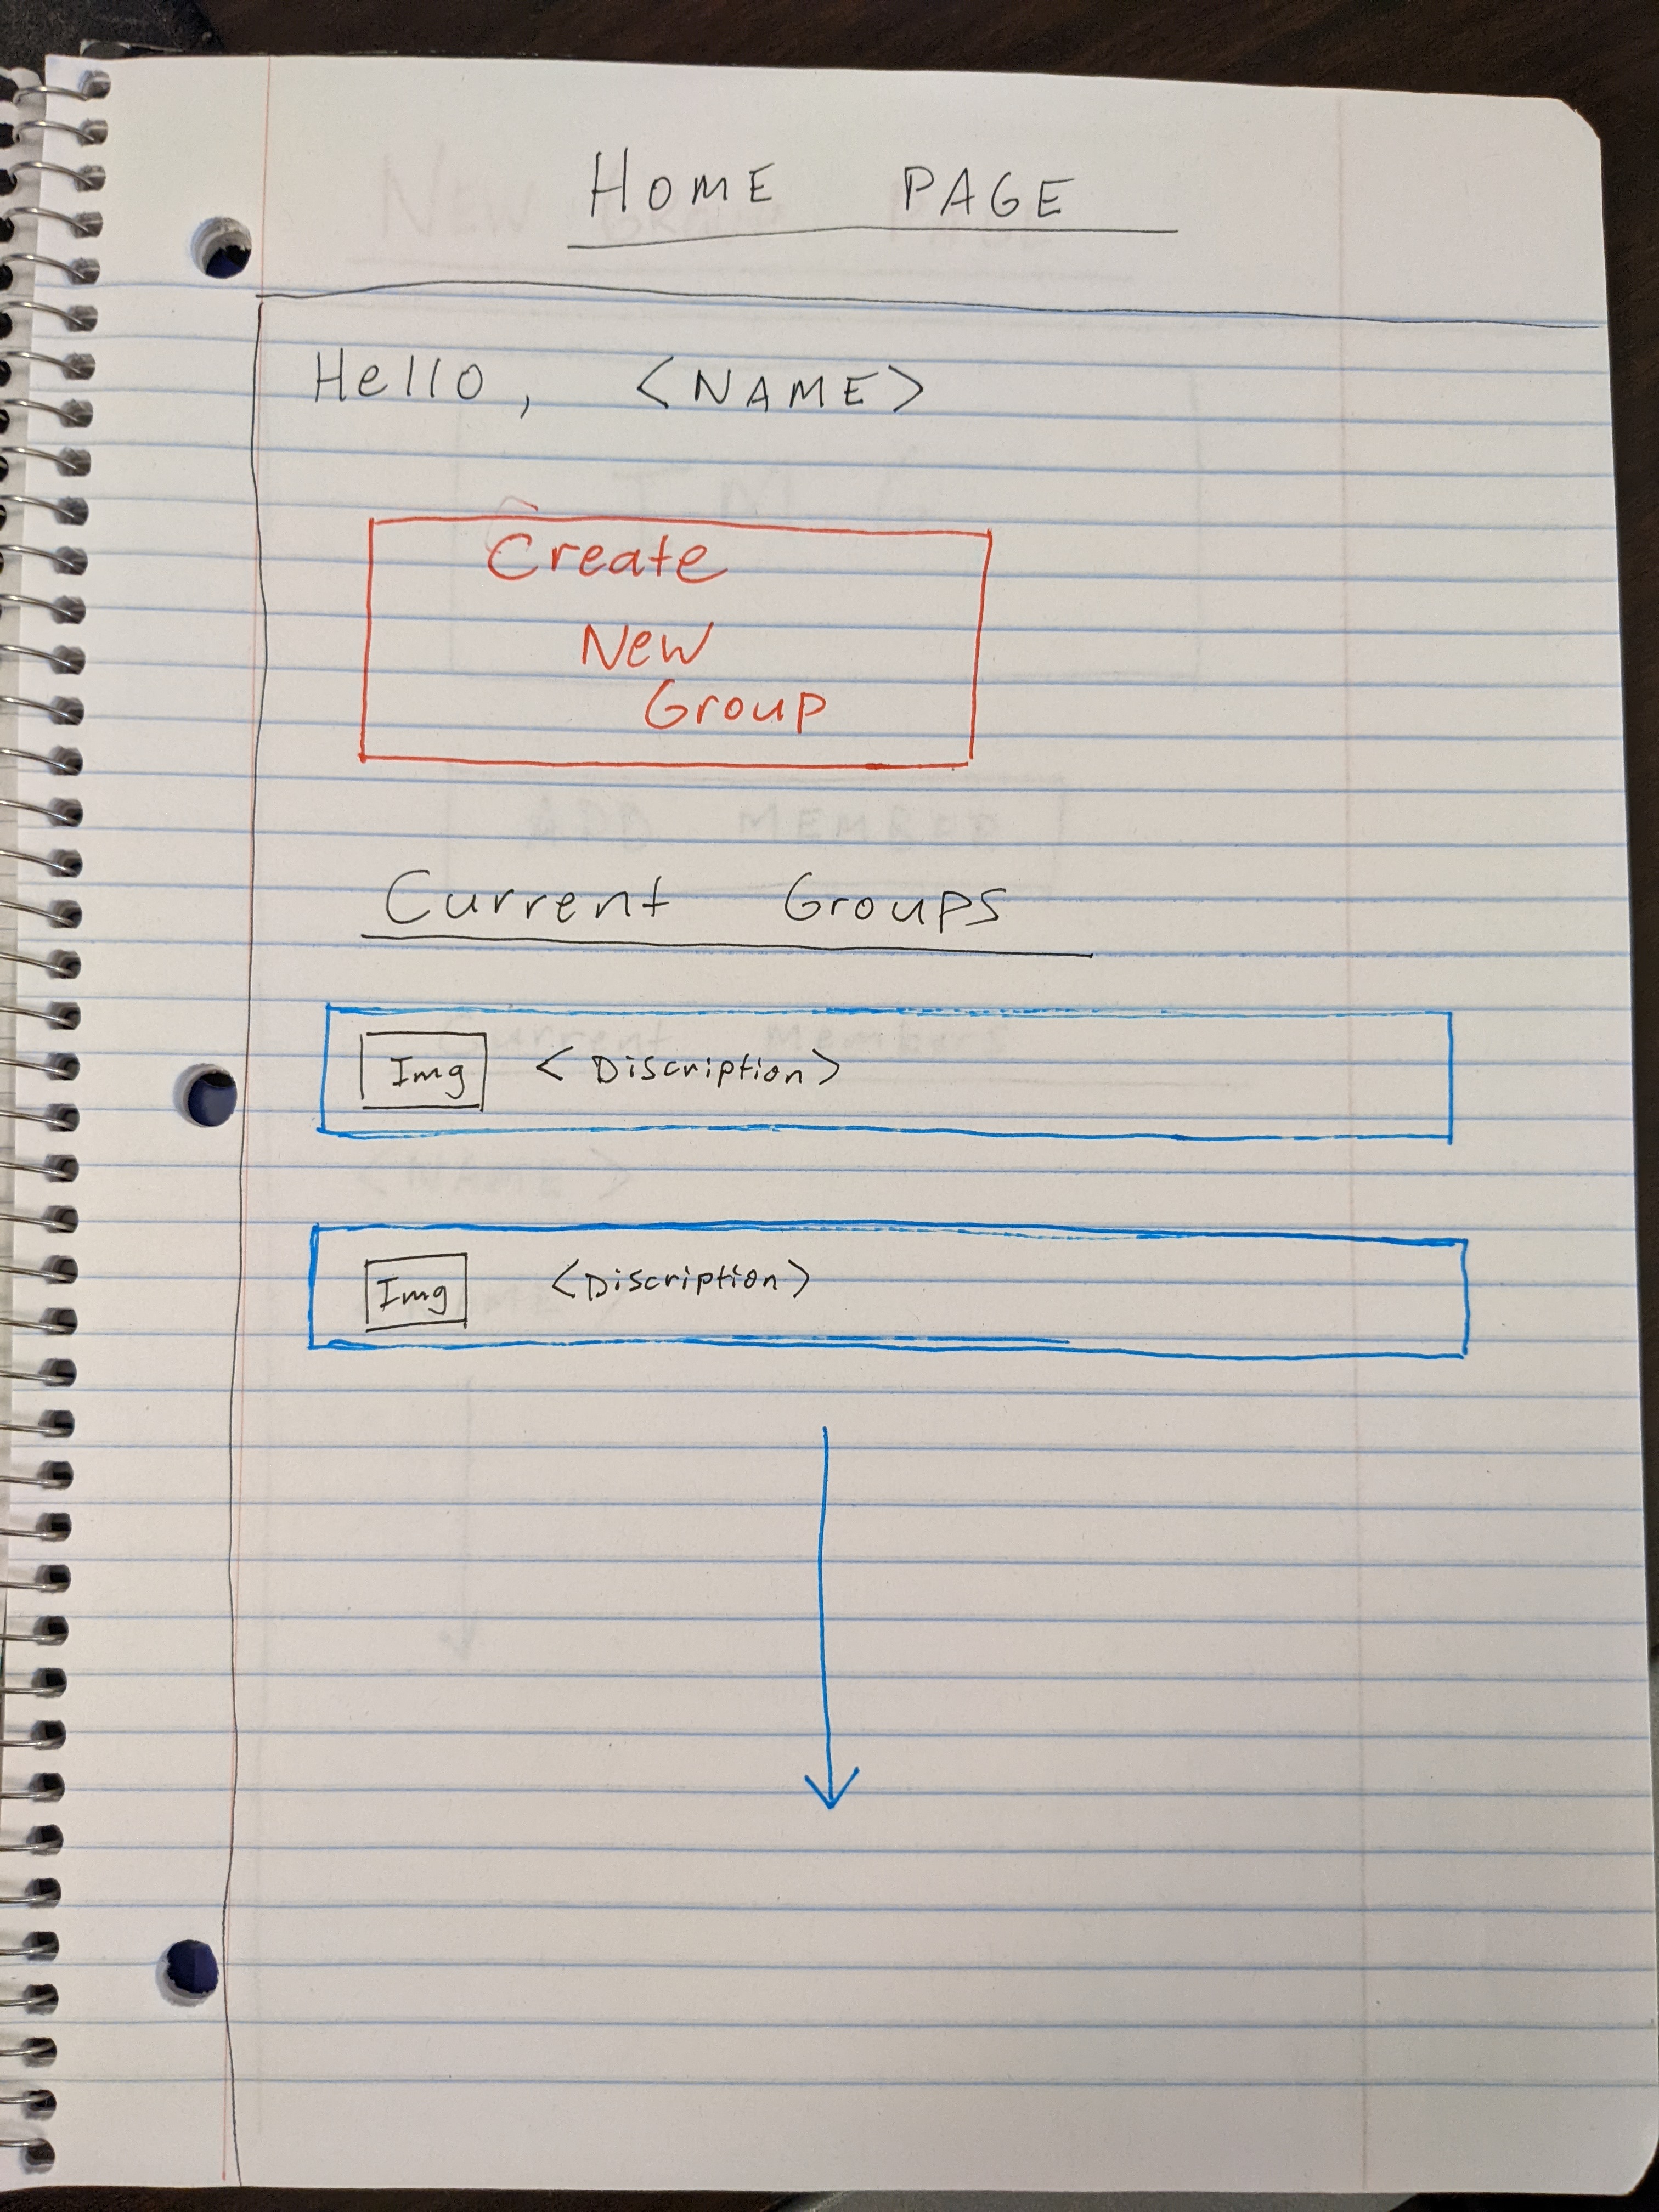 HOME PAGE
Hello, <NAME>
Create
New
Group
Current Groups
Img <Discription>
Img <Discription>